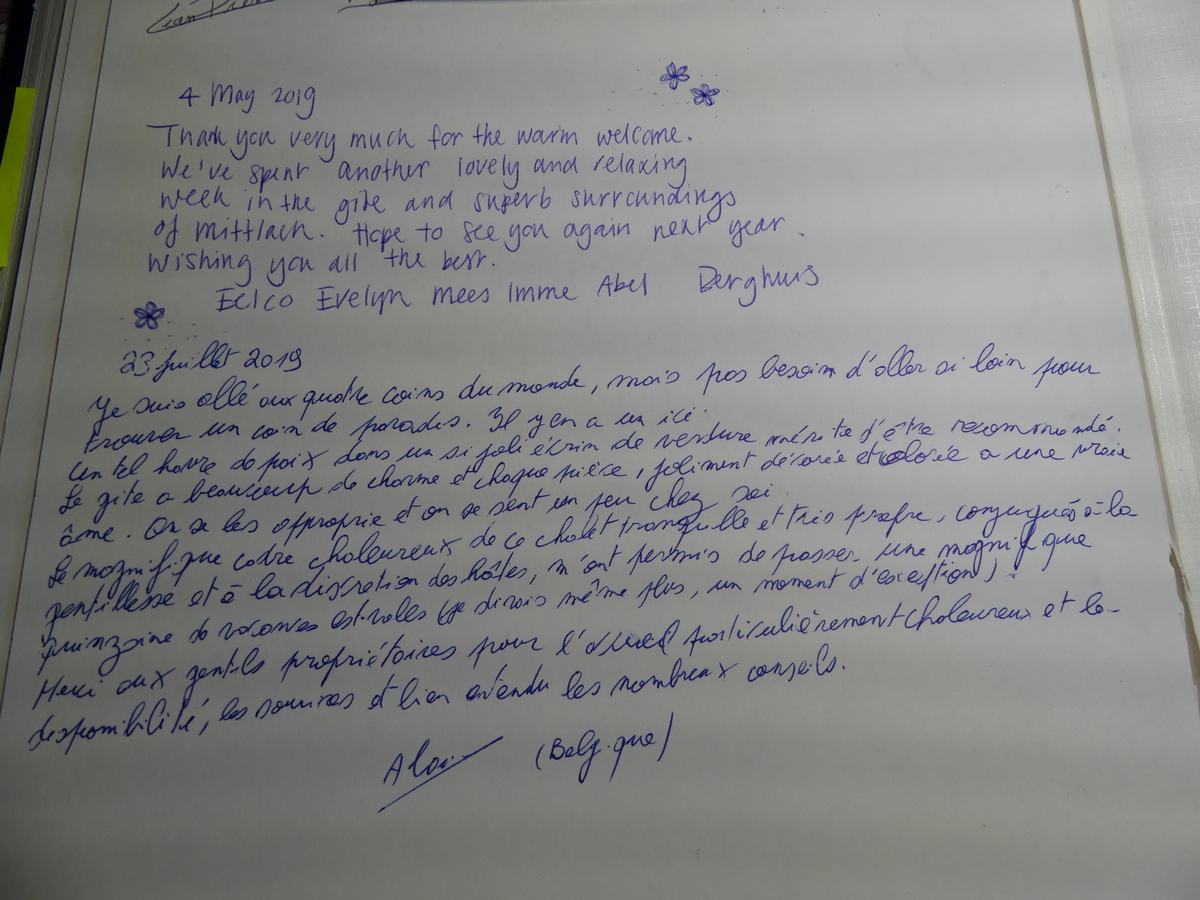 4 May 2019
Thank you very much for the warm welcome.
We've spent another lovely and relaxing
week in the gite and superb surroundings
of Mittlach. Hope to see you again next year.
Wishing you all the best.
Eelco Evelyn Mees Imme Abel Berghuis
23 juillet 2019
Je suis allé aux quatre coins du monde, mais pas besoin d'aller si loin pour
trouver un coin de paradis. Il y en a un ici.
Un tel havre de paix dans un si joli écrin de verdure mérite d'être recommandé.
Le gite a beaucoup de charme et chaque pièce, joliment décorée et colorée a une vraie
âme. On se les approprie et on se sent un peu chez soi.
Le magnifique cadre chaleureux de ce chalet tranquille et très propre, conjugués à la
gentillesse et à la discretion des hôtes, m'ont permis de passer une magnifique
quinzaine de vacances estivales (je dirais même plus, un moment d'exception)!
Merci aux gentils propriétaires pour l'accueil particulièrement chaleureux et la
disponibilité, les sourires et bien entendu les nombreux conseils.
Alain (Belgique)